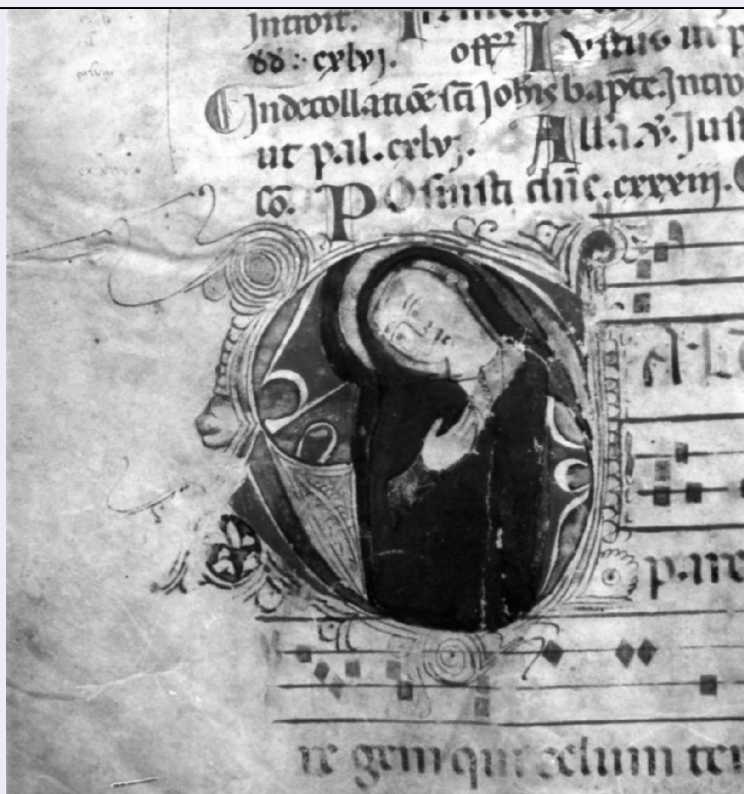 Introit.
&&: cxlvj. offꝫ Iustus ut p
Indecollatiõe sci Johis bapte. Introi
ut pal. cxlvj. All.a. v. Just
cõ. Posuisti dñe. cxxxiij.
A L
pare
re gem qui celum ter